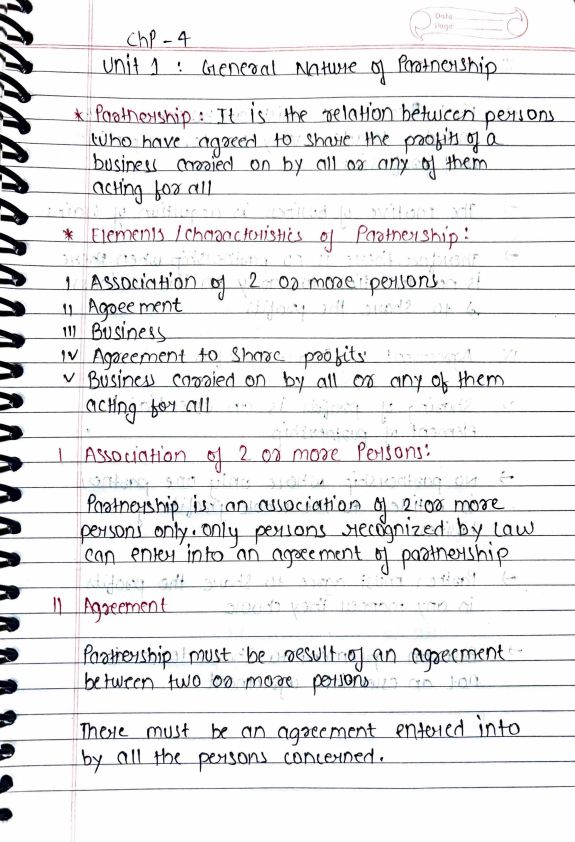 Date
Page
Chp - 4
Unit 1 : General Nature of Partnership
* Partnership : It is the relation between persons
who have agreed to share the profits of a
business carried on by all or any of them
acting for all
* Elements / characteristics of Partnership :
I Association of 2 or more persons
II Agreement
III Business
IV Agreement to share profits
V Business carried on by all or any of them
acting for all
I Association of 2 or more Persons :
Partnership is an association of 2 or more
persons only. only persons recognized by law
can enter into an agreement of partnership
II Agreement
Partnership must be result of an agreement
between two or more persons
There must be an agreement entered into
by all the persons concerned.